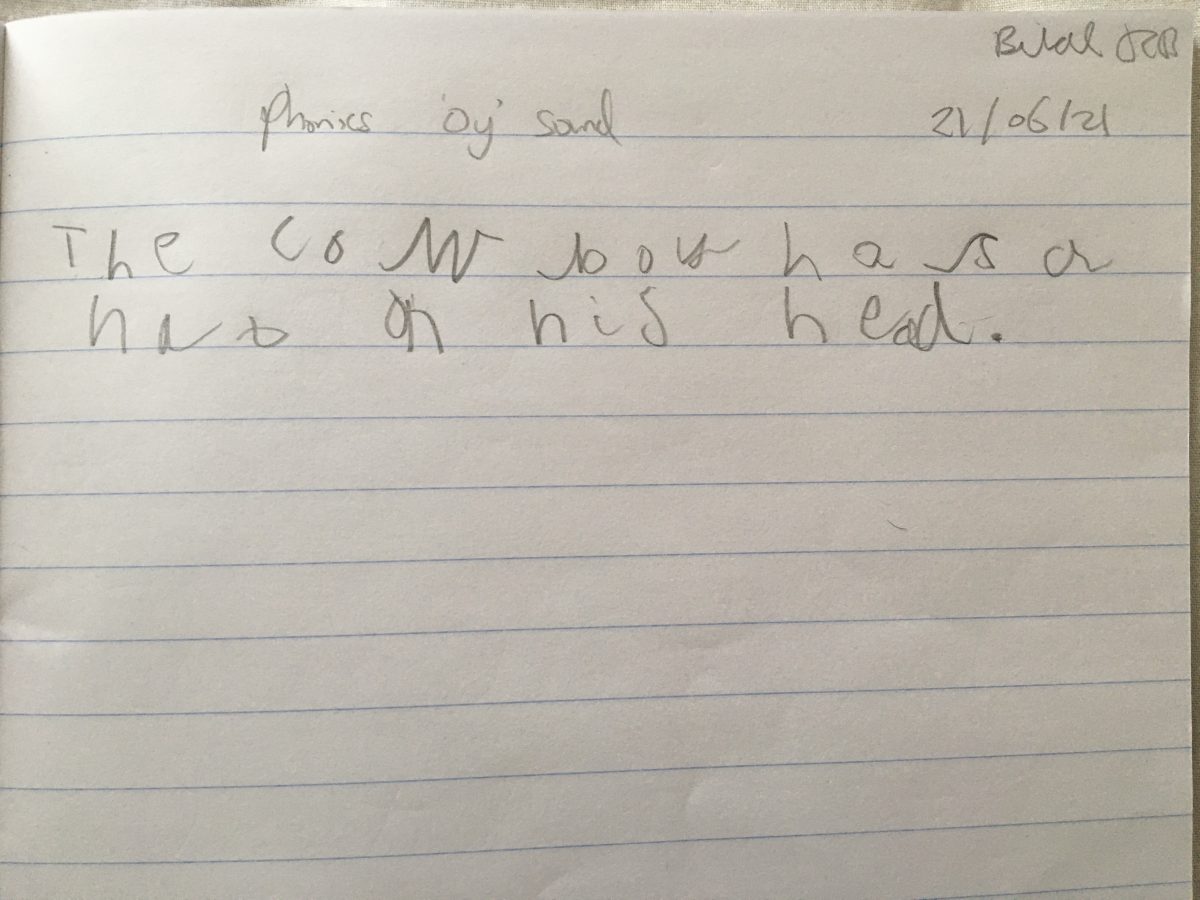 Bilal JRB
Phonics 'oy' sound 21/06/21
The cowboy has a
hat on his head.